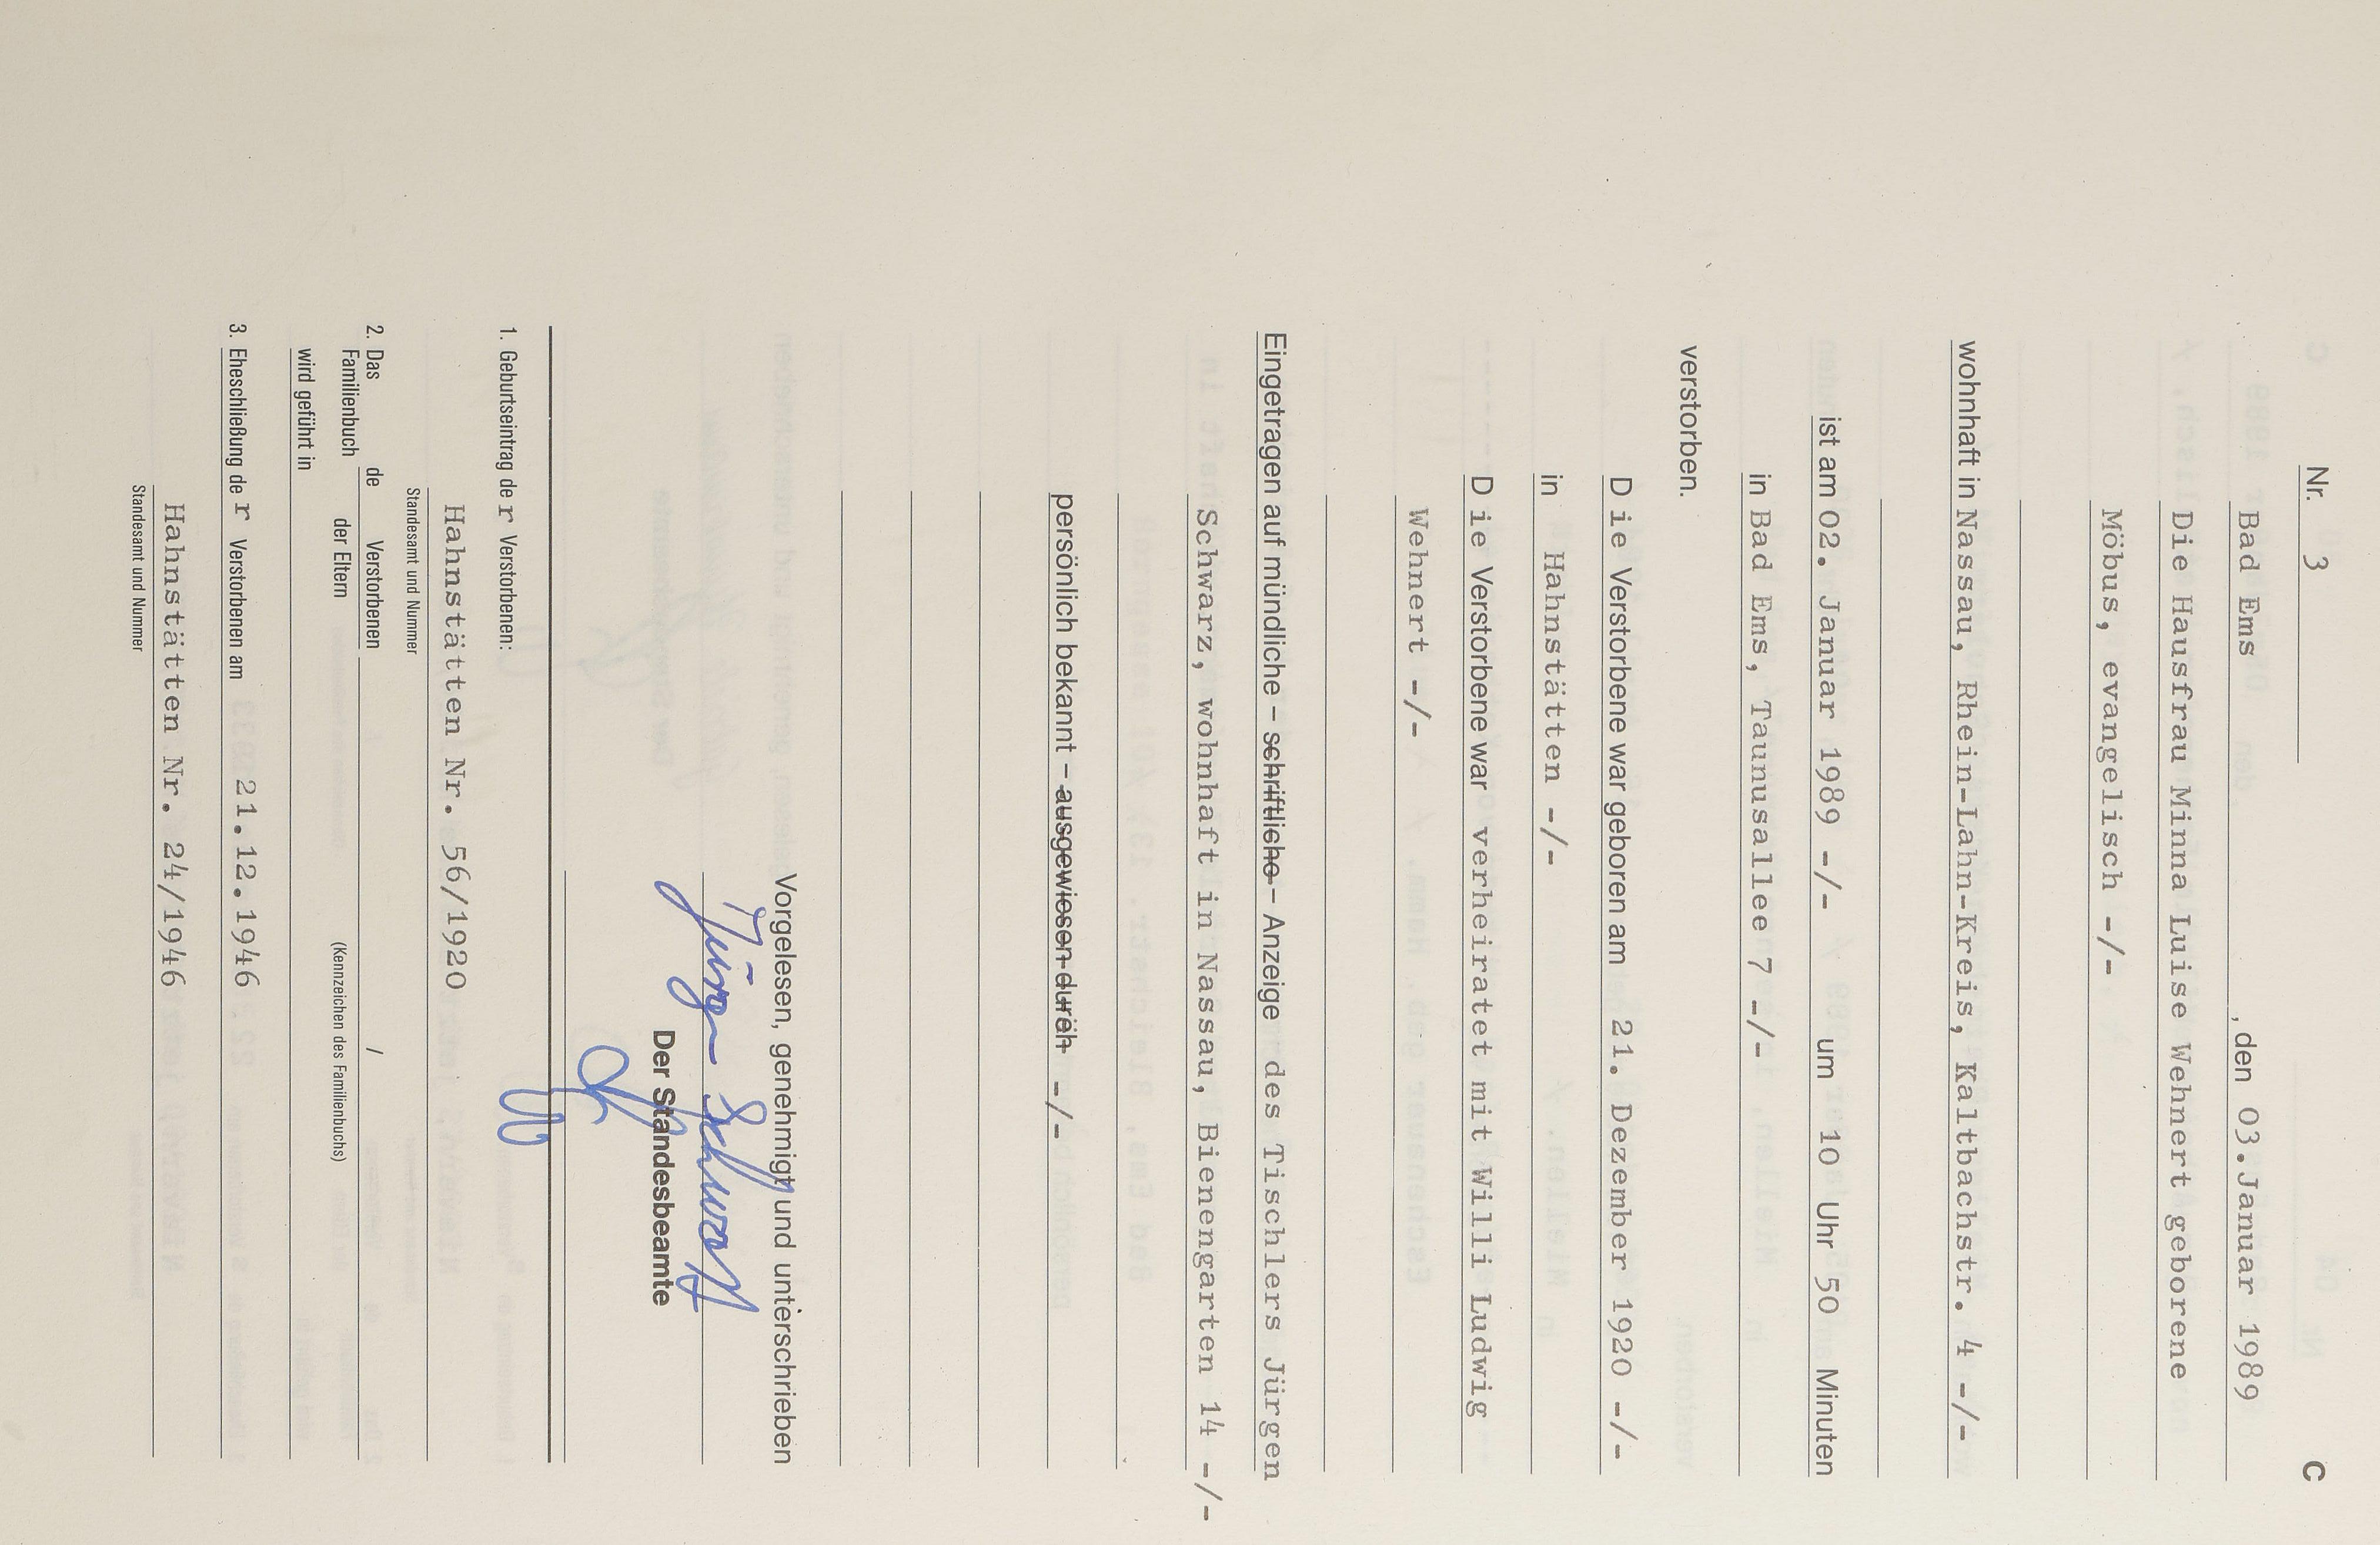 Nr. 3 C
Bad Ems , den 03.Januar 1989
Die Hausfrau Minna Luise Wehnert geborene
Möbus, evangelisch -/-
wohnhaft in Nassau, Rhein-Lahn-Kreis, Kaltbachstr. 4 -/-
ist am 02. Januar 1989 -/- um 10 Uhr 50 Minuten
in Bad Ems, Taunusallee 7 -/-
verstorben.
D ie Verstorbene war geboren am 21. Dezember 1920 -/-
in Hahnstätten -/-
D ie Verstorbene war verheiratet mit Willi Ludwig
Wehnert -/-
Eingetragen auf mündliche – schriftliche – Anzeige des Tischlers Jürgen
Schwarz, wohnhaft in Nassau, Bienengarten 14 -/-
persönlich bekannt – ausgewiesen durch -/-
Vorgelesen, genehmigt und unterschrieben
Jürgen Schwarz
Der Standesbeamte
1. Geburtseintrag de r Verstorbenen:
Hahnstätten Nr. 56/1920
Standesamt und Nummer
2. Das de Verstorbenen /
Familienbuch der Eltern (Kennzeichen des Familienbuchs)
wird geführt in
3. Eheschließung de r Verstorbenen am 21.12.1946
Hahnstätten Nr. 24/1946
Standesamt und Nummer